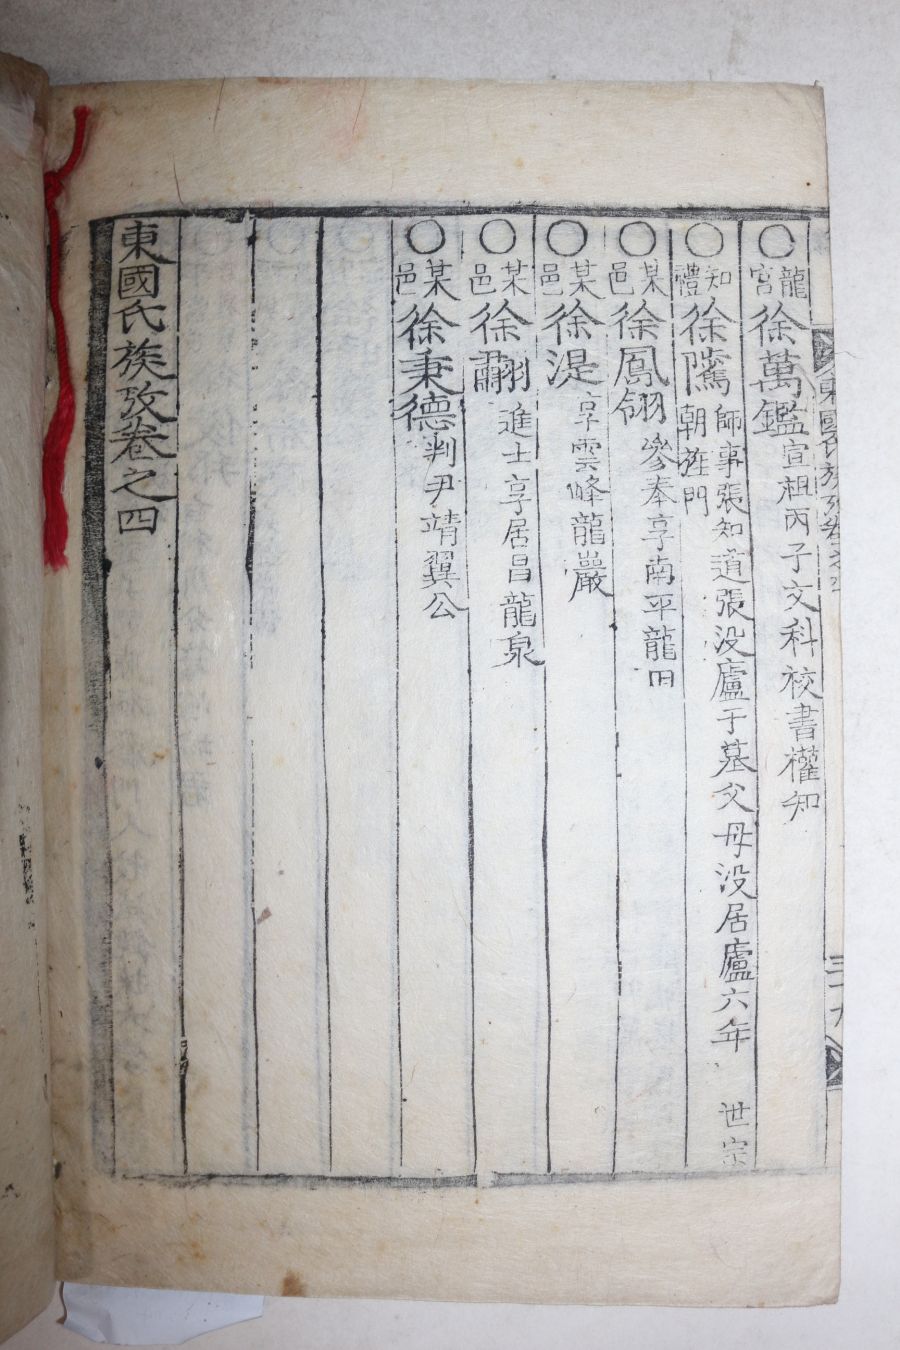 ○龍宮徐萬鑑宣祖丙子文科校書權知
○知禮徐隲師事張知道張没廬于墓父母没居廬六年 世宗朝旌門
○某邑徐鳳翎參奉享南平龍田
○某邑徐湜享雲峰龍巖
○某邑徐翽進士享居昌龍泉
○某邑徐秉德判尹靖翼公
東國氏族攷卷之四